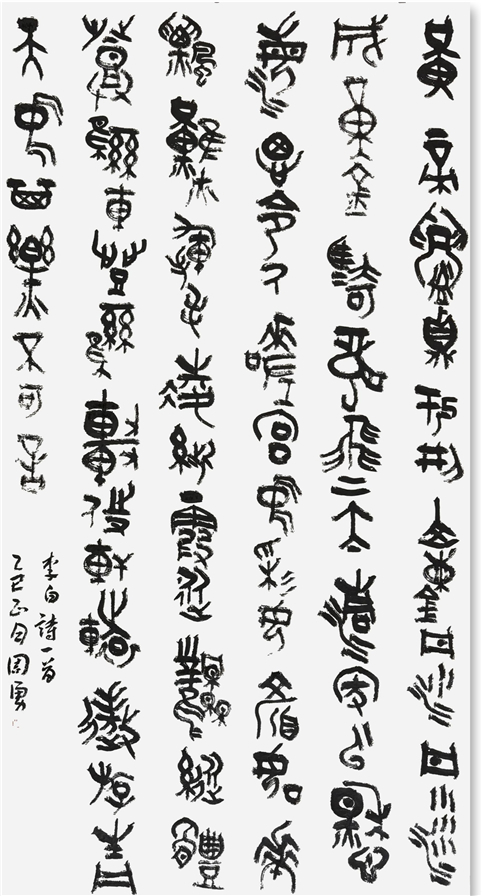 黃帝鑄鼎於荊山鍊丹沙丹沙
成黃金騎龍飛上太清家雲愁
海思令人嗟宮中彩女顏如花
飄然揮手凌紫霞從風縱體
登鸞車登鸞車侍軒轅遨遊青
天中其樂不可言
李白詩一首
乙巳正月周勇